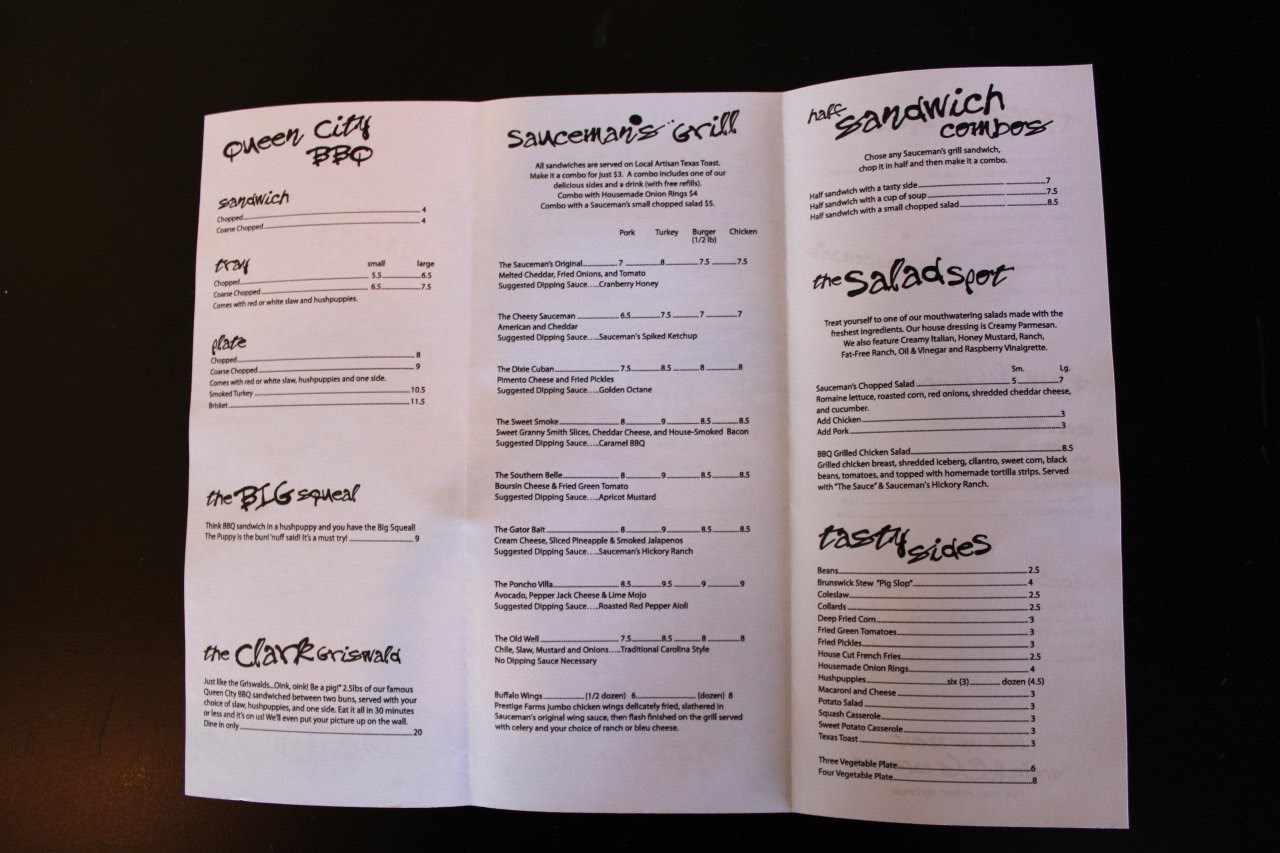 Queen City
BBQ
sandwich
Chopped 4
Coarse Chopped 4
tray small large
Chopped 5.5 6.5
Coarse Chopped 6.5 7.5
Comes with red or white slaw and hushpuppies.
plate
Chopped 8
Coarse Chopped 9
Comes with red or white slaw, hushpuppies and one side.
Smoked Turkey 10.5
Brisket 11.5
the BIG squeal
Think BBQ sandwich in a hushpuppy and you have the Big Squeal!
The Puppy is the bun! 'nuff said! It's a must try! 9
the Clark Griswald
Just like the Griswalds...Oink, oink! Be a pig!" 2.5lbs of our famous
Queen City BBQ sandwiched between two buns, served with your
choice of slaw, hushpuppies, and one side. Eat it all in 30 minutes
or less and it's on us! We'll even put your picture up on the wall.
Dine in only 20
Sauceman's Grill
All sandwiches are served on Local Artisan Texas Toast.
Make it a combo for just $3. A combo includes one of our
delicious sides and a drink (with free refills).
Combo with Housemade Onion Rings $4
Combo with a Sauceman's small chopped salad $5.
Pork Turkey Burger Chicken
(1/2 lb)
The Sauceman's Original 7 8 7.5 7.5
Melted Cheddar, Fried Onions, and Tomato
Suggested Dipping Sauce.....Cranberry Honey
The Cheesy Sauceman 6.5 7.5 7 7
American and Cheddar
Suggested Dipping Sauce.....Sauceman's Spiked Ketchup
The Dixie Cuban 7.5 8.5 8 8
Pimento Cheese and Fried Pickles
Suggested Dipping Sauce.....Golden Octane
The Sweet Smoke 8 9 8.5 8.5
Sweet Granny Smith Slices, Cheddar Cheese, and House-Smoked Bacon
Suggested Dipping Sauce.....Caramel BBQ
The Southern Belle 8 9 8.5 8.5
Boursin Cheese & Fried Green Tomato
Suggested Dipping Sauce.....Apricot Mustard
The Gator Bait 8 9 8.5 8.5
Cream Cheese, Sliced Pineapple & Smoked Jalapenos
Suggested Dipping Sauce.....Sauceman's Hickory Ranch
The Poncho Villa 8.5 9.5 9 9
Avocado, Pepper Jack Cheese & Lime Mojo
Suggested Dipping Sauce.....Roasted Red Pepper Aioli
The Old Well 7.5 8.5 8 8
Chile, Slaw, Mustard and Onions.....Traditional Carolina Style
No Dipping Sauce Necessary
Buffalo Wings (1/2 dozen) 6 (dozen) 8
Prestige Farms Jumbo chicken wings delicately fried, slathered in
Sauceman's original wing sauce, then flash finished on the grill served
with celery and your choice of ranch or bleu cheese.
half sandwich
combos
Chose any Sauceman's grill sandwich,
chop it in half and then make it a combo.
Half sandwich with a tasty side 7
Half sandwich with a cup of soup 7.5
Half sandwich with a small chopped salad 8.5
the Salad Spot
Treat yourself to one of our mouthwatering salads made with the
freshest ingredients. Our house dressing is Creamy Parmesan.
We also feature Creamy Italian, Honey Mustard, Ranch,
Fat-Free Ranch, Oil & Vinegar and Raspberry Vinaigrette.
Sm. Lg.
Sauceman's Chopped Salad 5 7
Romaine lettuce, roasted corn, red onions, shredded cheddar cheese,
and cucumber.
Add Chicken 3
Add Pork 3
BBQ Grilled Chicken Salad 8.5
Grilled chicken breast, shredded iceberg, cilantro, sweet corn, black
beans, tomatoes, and topped with homemade tortilla strips. Served
with "The Sauce" & Sauceman's Hickory Ranch.
tasty sides
Beans 2.5
Brunswick Stew "Pig Slop" 4
Coleslaw 2.5
Collards 2.5
Deep Fried Corn 3
Fried Green Tomatoes 3
Fried Pickles 3
House Cut French Fries 2.5
Housemade Onion Rings 4
Hushpuppies six (3) dozen (4.5)
Macaroni and Cheese 3
Potato Salad 3
Squash Casserole 3
Sweet Potato Casserole 3
Texas Toast 3
Three Vegetable Plate 6
Four Vegetable Plate 8